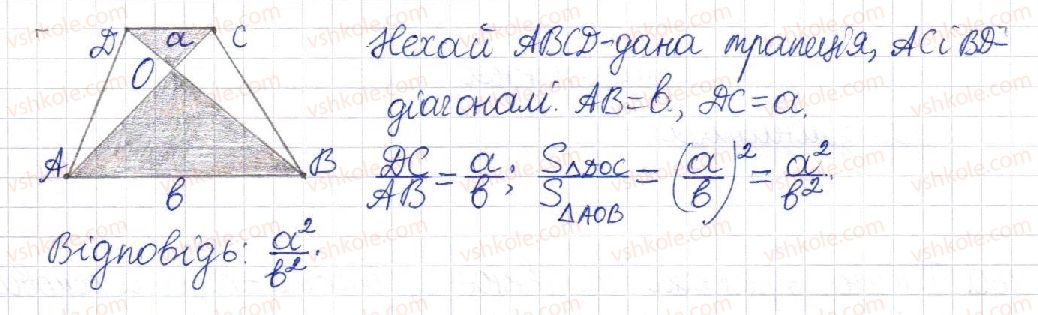 D a C
O
A B
b
Нехай ABCD-дана трапеція, AC і BD-
діагоналі. AB=b., DC=a.
DC/AB = a/b; S△DOC/S△AOB = (a/b)² = a²/b².
Відповідь: a²/b².
vshkole.com